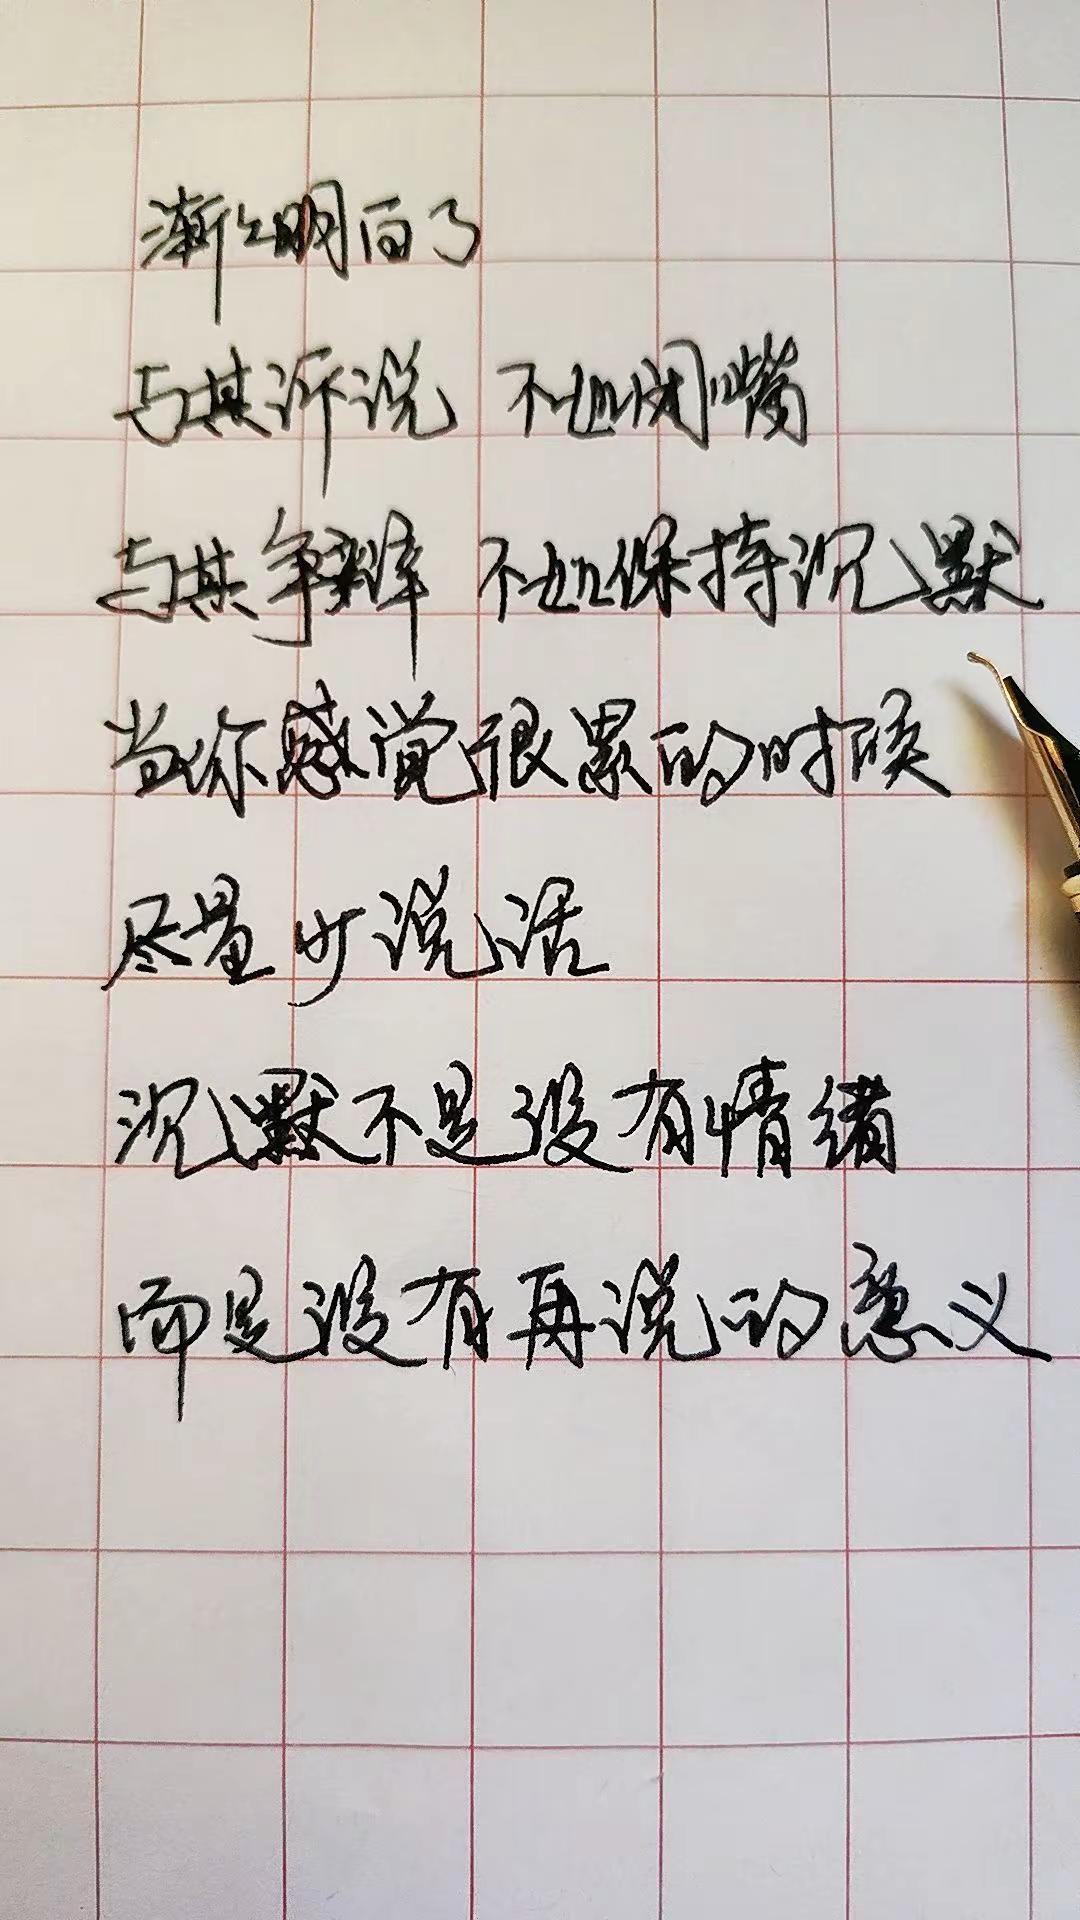 渐渐明白了
与其诉说 不如闭嘴
与其争辩 不如保持沉默
当你感觉很累的时候
尽量少说话
沉默不是没有情绪
而是没有再说的意义